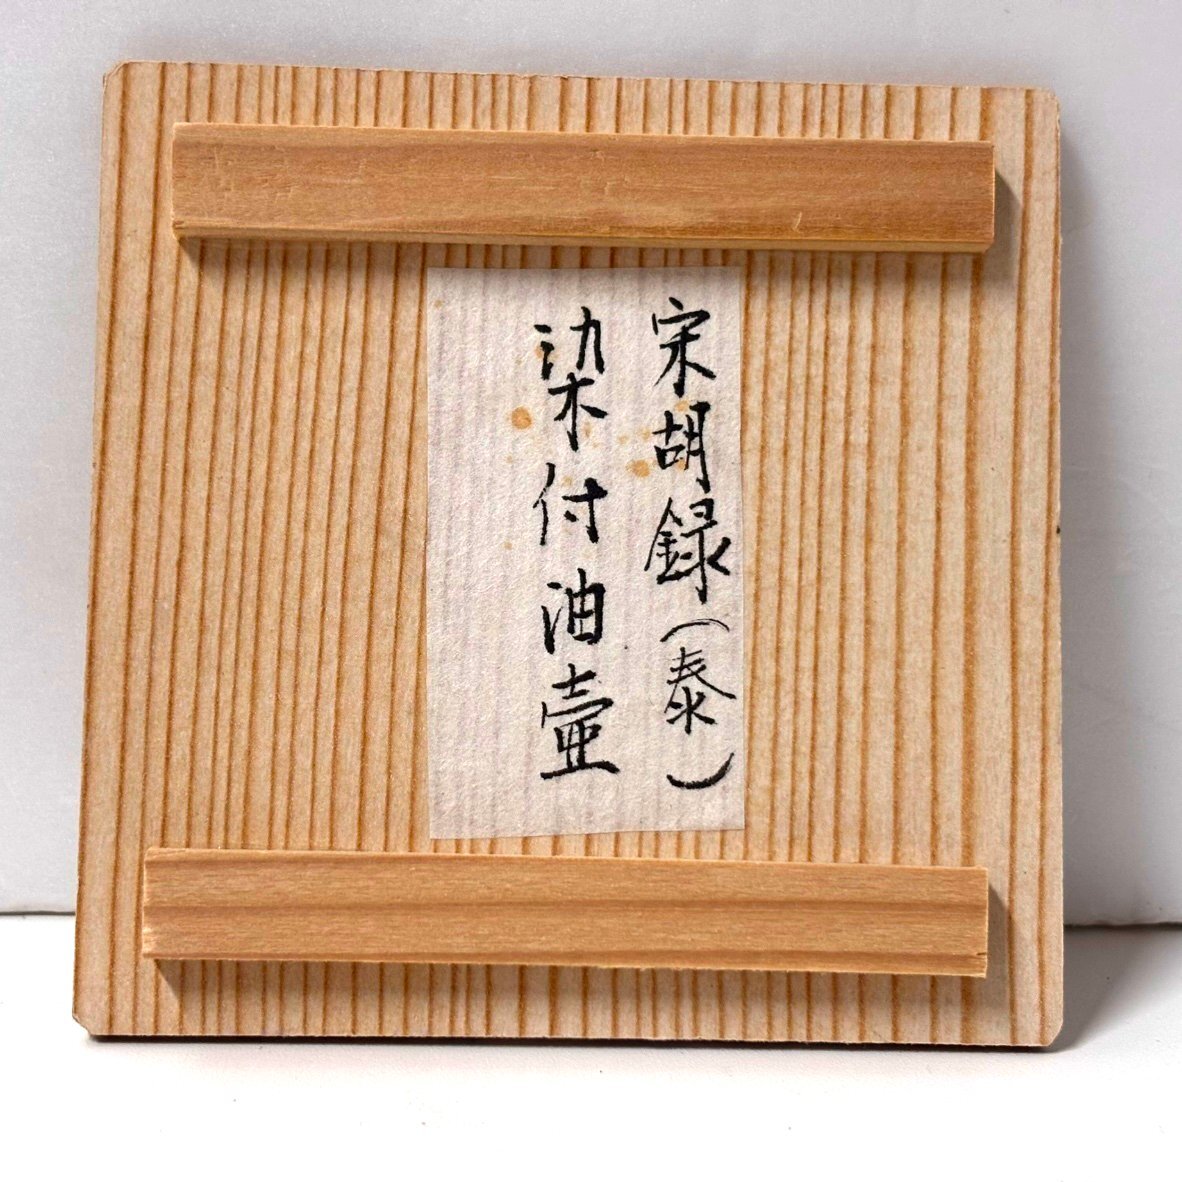 宋胡録（泰）
染付油壷